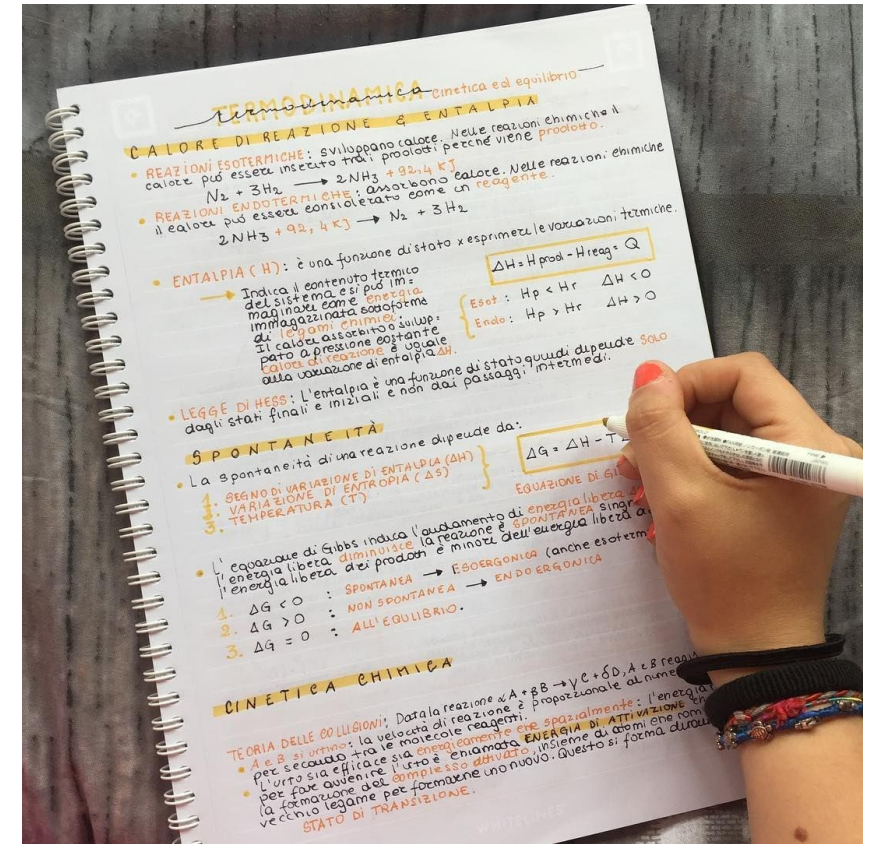 TERMODINAMICA
termodinamica cinetica ed equilibrio
CALORE DI REAZIONE & ENTALPIA
• REAZIONI ESOTERMICHE: sviluppano calore. Nelle reazioni chimiche il
calore può essere inserito tra i prodotti perché viene prodotto.
N2 + 3H2 → 2NH3 + 92,4 KJ
• REAZIONI ENDOTERMICHE: assorbono calore. Nelle reazioni chimiche
il calore può essere considerato come un reagente.
2NH3 + 92,4 KJ → N2 + 3H2
• ENTALPIA (H): è una funzione di stato x esprimere le variazioni termiche.
→ Indica il contenuto termico
del sistema e si può im=
maginare come energia
immagazzinata sottoforma
di legami chimici.
Il calore assorbito o svilup=
pato a pressione costante
calore di reazione è uguale
alla variazione di entalpia ΔH.
ΔH = H prod - H reag = Q
Esot: Hp < Hr ΔH < 0
Endo: Hp > Hr ΔH > 0
• LEGGE DI HESS: L'entalpia è una funzione di stato quindi dipende SOLO
dagli stati finali e iniziali e non dai passaggi intermedi.
SPONTANEITÀ
• La spontaneità di una reazione dipende da:
1. SEGNO DI VARIAZIONE DI ENTALPIA (ΔH)
2. VARIAZIONE DI ENTROPIA (ΔS)
3. TEMPERATURA (T)
ΔG = ΔH - T
EQUAZIONE DI
• L'equazione di Gibbs indica l'andamento di energia libera
l'energia libera diminuisce la reazione è SPONTANEA
l'energia libera dei prodotti è minore dell'energia libera
1. ΔG < 0 : SPONTANEA → ESOERGONICA (anche
2. ΔG > 0 : NON SPONTANEA → ENDOERGONICA
3. ΔG = 0 : ALL'EQULIBRIO.
CINETICA CHIMICA
TEORIA DELLE COLLISIONI: Data la reazione αA + βB → γC + δD, A e B
• A e B si urtino: la velocità di reazione è proporzionale al
per secondo tra le molecole reagenti.
• L'urto sia efficace sia energicamente che spazialmente: l'energia
per fare avvenire l'urto è chiamata ENERGIA DI ATTIVAZIONE
la formazione del complesso attivato, insieme di atomi che
vecchio legame per formarne uno nuovo. Questo si forma
STATO DI TRANSIZIONE.
WHITELINES